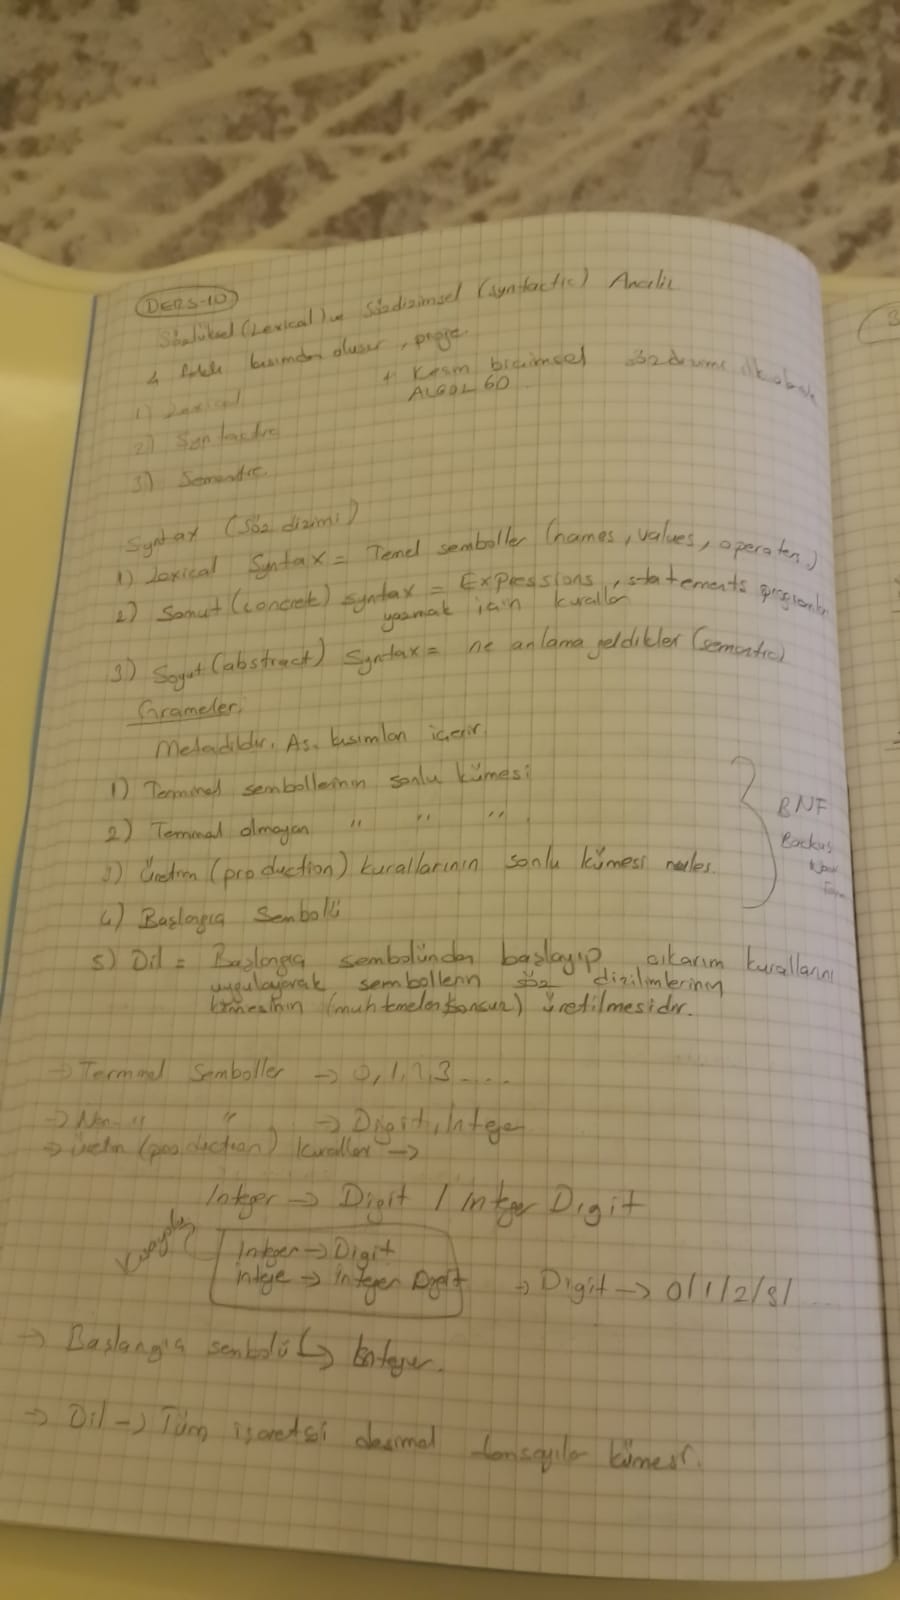 DERS-10
Sözlüksel (Lexical) ve Sözdizimsel (syntactic) Analiz
kısımdan oluşur, proje
+ Kesin biçimsel
ALGOL 60
1) Lexical
2) Syntactic
3) Semantic
Syntax (Söz dizimi)
1) Lexical Syntax = Temel semboller (names, values, operators)
2) Somut (concrete) syntax = Expressions, statements programları
yazmak için kurallar
3) Soyut (abstract) Syntax = ne anlama geldikleri (semantic)
Grameler;
Metadildir. Aş. kısımları içerir.
1) Terminal sembollerinin sonlu kümesi
2) Terminal olmayan " " "
3) Üretim (production) kurallarının sonlu kümesi rules.
BNF
Backus
Naur
Form
4) Başlangıç Sembolü
5) Dil = Başlangıç sembolünden başlayıp çıkarım kurallarını
uygulayarak sembollerin söz dizilimlerinin
kümesinin (muhtemelen sonsuz) üretilmesidir.
→ Terminal Semboller → 0, 1, 2, 3 ....
→ Non- " " → Digit, Integer
→ üretim (production) kurallar →
Integer → Digit / Integer Digit
Integer → Digit
intege → integer Digit → Digit → 0/1/2/3/ ...
→ Başlangıç sembolü → Integer.
→ Dil → Tüm işaretsiz desimal tamsayılar kümesi.